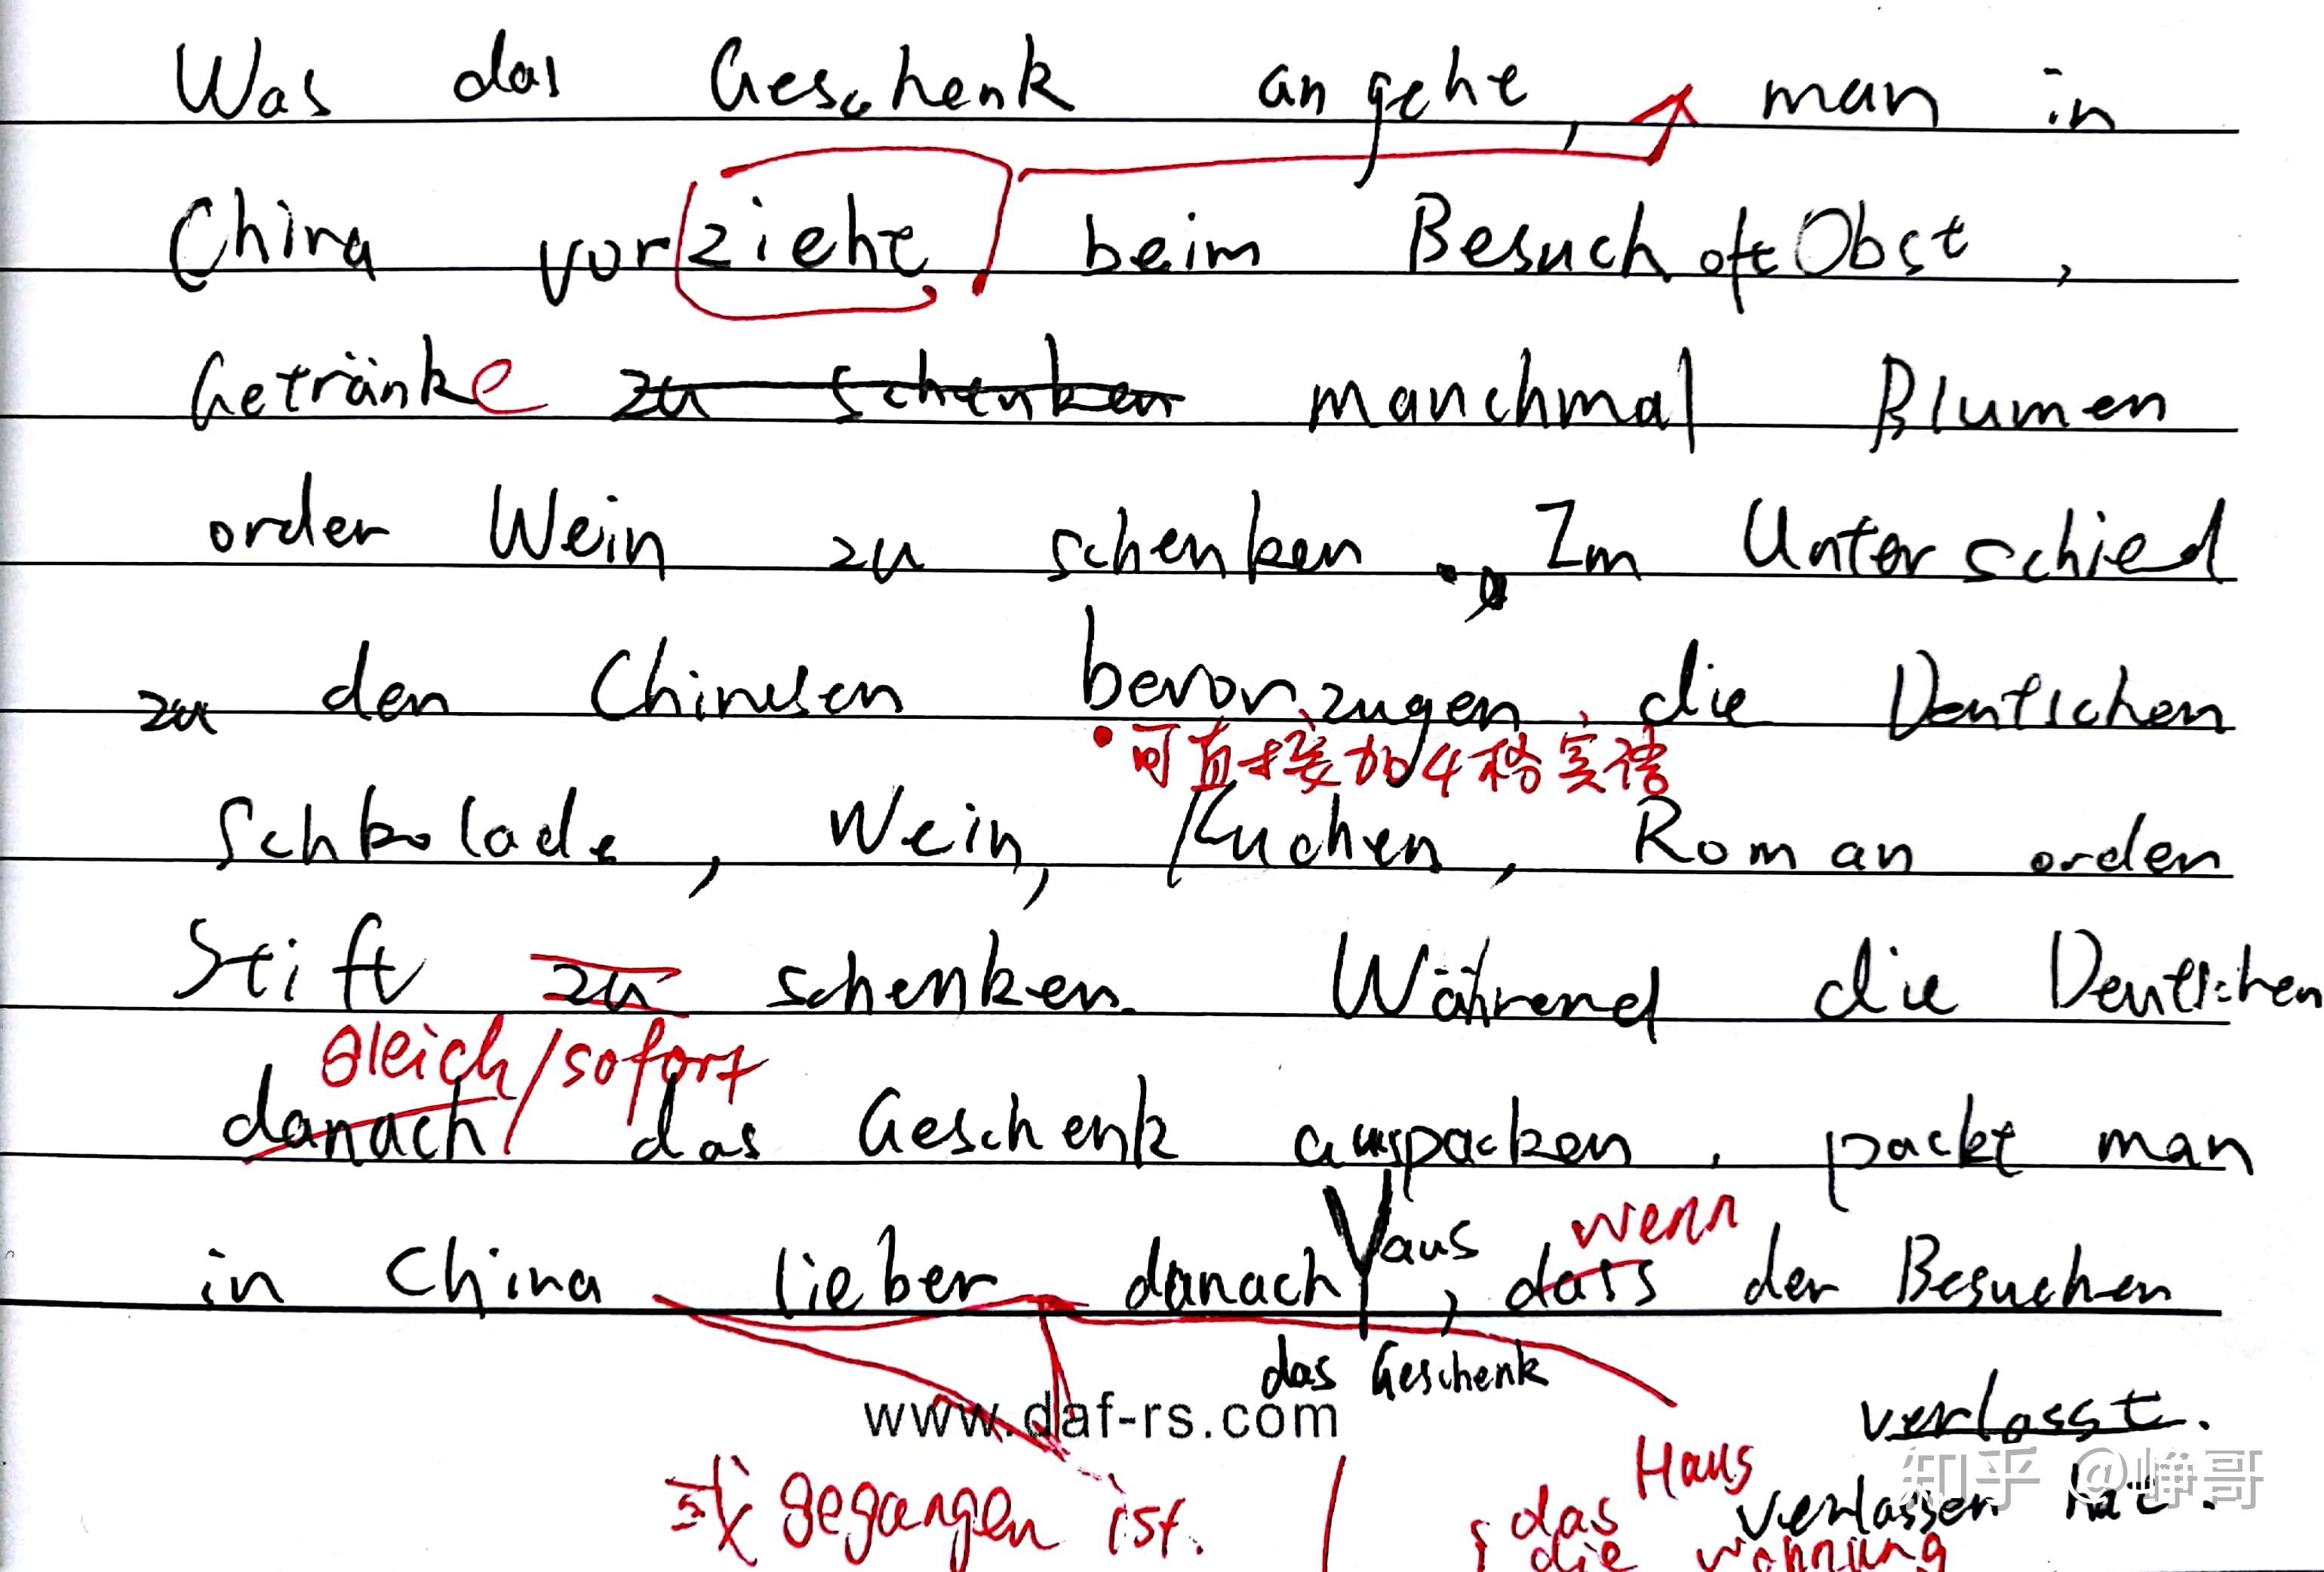 Was das Geschenk angeht, man in
China vorzieht beim Besuch oft Obst,
Getränke zu schenken manchmal Blumen
order Wein zu schenken. Im Unterschied
zu den Chinesen bevorzugen die Deutschen
可直接加4格宾语
Schkolade, Wein, Kuchen, Roman orden
Stift zu schenken. Während die Deutschen
gleich/sofort
danach das Geschenk auspacken, packt man
wenn
in China lieber danach aus, dass der Besuchen
das Geschenk
www.daf-rs.com
verlasst.
Haus
或 gegangen ist.
das verlassen hat.
die Wohnung
知乎 @峥哥